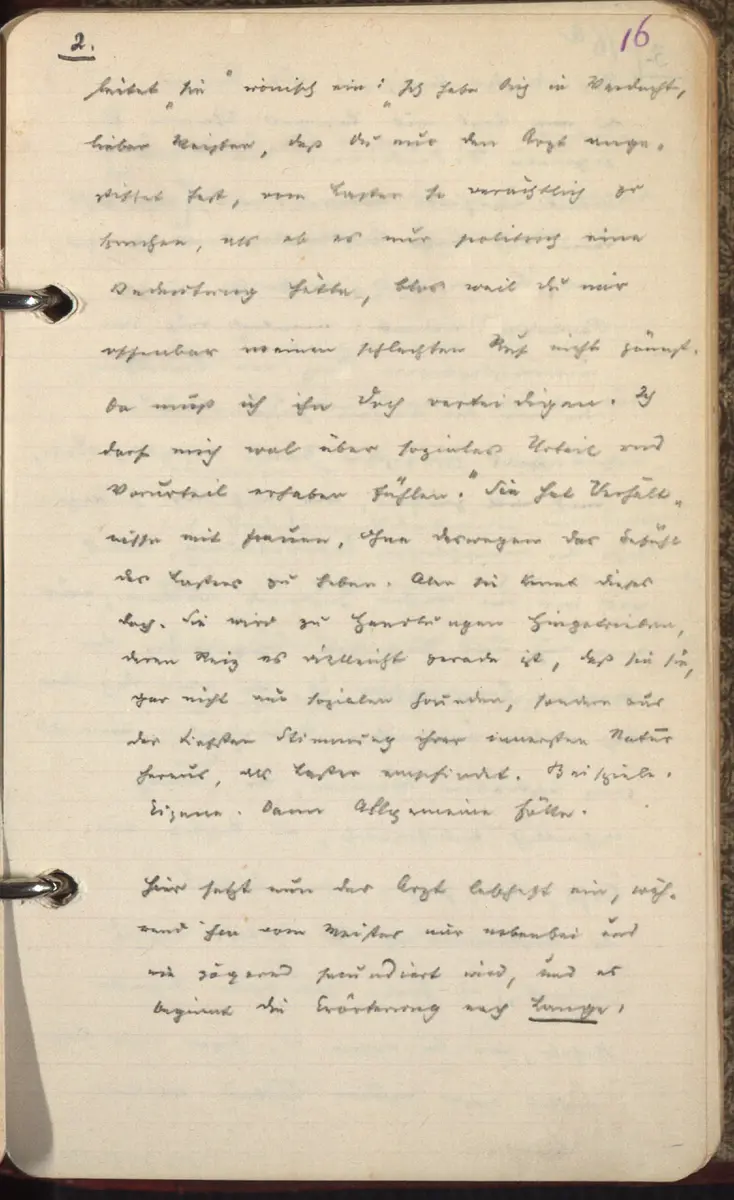 2.
16
leitet „sie“ ironisch ein: „Ich habe Dich in Verdacht,
lieber Meister, daß Du nur den Arzt ange-
stiftet hast, vom Laster so verächtlich zu
sprechen, als ob es nur politisch eine
Bedeutung hätte, blos weil Du mir
offenbar meinen schlechten Ruf nicht gönnst.
Da muß ich ihn doch verteidigen. Ich
darf mich wol über soziales Urteil und
Vorurteil erhaben fühlen." Sie hat Verhält-
nisse mit Frauen, ohne deswegen das Gefühl
des Lasters zu haben. Aber sie kennt dieses
doch. Sie wird zu Handlungen hingetrieben,
deren Reiz es vielleicht gerade ist, daß sie sie,
gar nicht aus sozialen Gründen, sondern aus
der tiefsten Stimmung ihrer innersten Natur
heraus, als Laster empfindet. Beispiele.
Eigene. Dann Allgemeine Fälle.
Hier setzt nun der Arzt lebhaft ein, wäh-
rend ihm vom Meister nur nebenbei und
wie zögernd secundiert wird, und es
beginnt die Erörterung nach Lange.